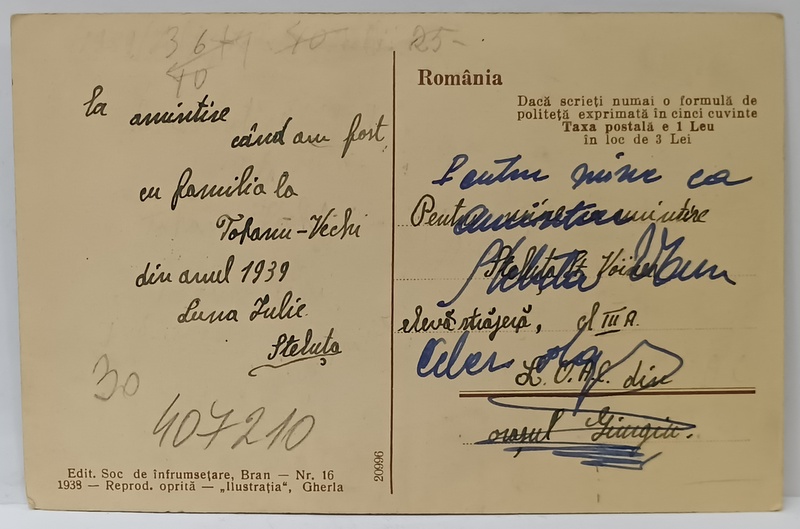 36
40
25-
la amintire
când am fost
cu familia la
Tohanu-Vechi
din anul 1939
Luna Iulie.
Steluța
30
407210
Edit. Soc de înfrumsețare, Bran — Nr. 16
1938 — Reprod. oprită — „Ilustrația“, Gherla
20996
România
Dacă scrieți numai o formulă de
politeță exprimată în cinci cuvinte
Taxa postală e 1 Leu
în loc de 3 Lei
Pentru mine ca
Pentru mine amintire
amintire
Steluța St. Voi
Steluța
elevă străjeră, cl III A.
din
orașul Giurgiu.